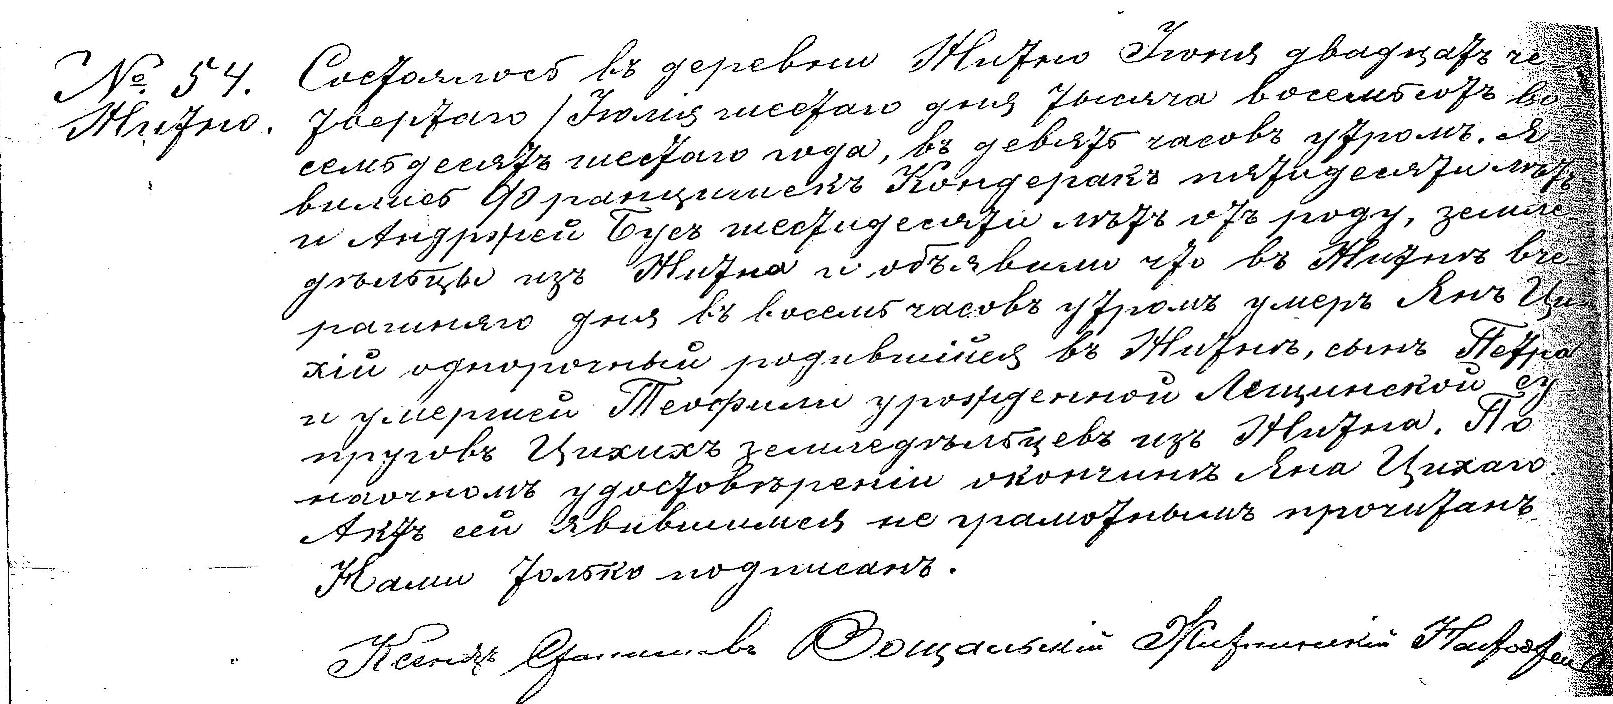 № 54. Состоялось въ деревни Житно Іюня двадцать че-
Житно. твертаго / Іюля шестаго дня тысяча восемьсотъ во
семьдесятъ шестаго года, въ девять часовъ утромъ. Я
вились Францишекъ Кондеракъ пятидесяти лѣтъ
и Андржей Бусъ шестидесяти лѣтъ отъ роду, земле-
дѣльцы изъ Житна и объявили что въ Житнѣ вче-
рашняго дня въ восемь часовъ утромъ умеръ Янъ Ци-
хій однорочный родившійся въ Житнѣ, сынъ Петра
и умершей Теофили урожденной Лещинской су
пруговъ Цихихъ земледѣльцевъ изъ Житна. По
наочномъ удостовѣреніи окончинѣ Яна Цихаго.
Актъ сей явившимся не грамотнымъ прочитанъ
Нами только подписанъ.
Ксендзъ Станиславъ Вощальскій Житненскій